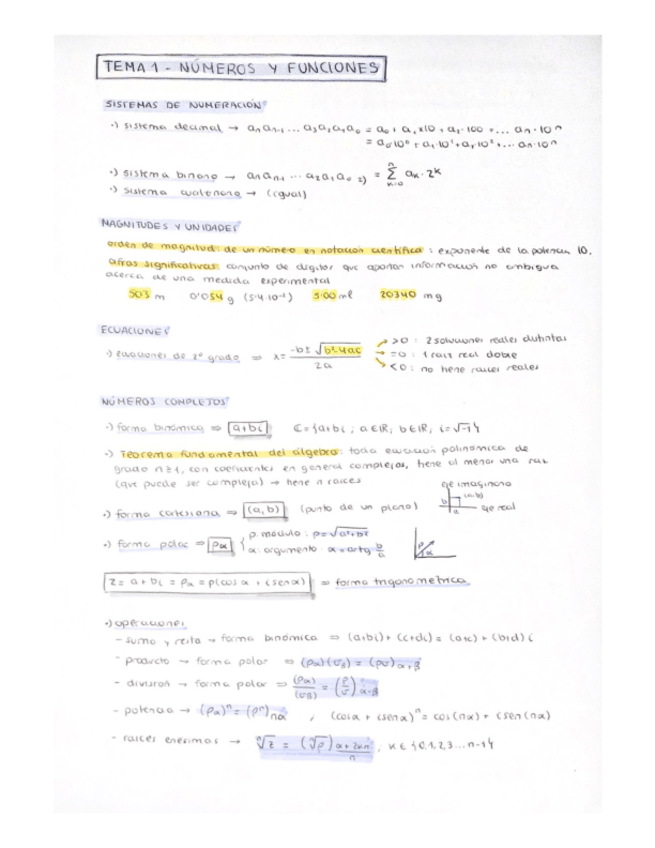 TEMA 1 - NÚMEROS Y FUNCIONES
SISTEMAS DE NUMERACIÓN
·) sistema decimal → aₙ aₙ₋₁ ... a₃ a₂ a₁ a₀ = a₀ + a₁ x10 + a₂ · 100 + ... aₙ · 10ⁿ
= a₀·10⁰ + a₁·10¹ + a₂·10² + ... aₙ·10ⁿ
·) sistema binario → aₙ aₙ₋₁ ... a₂ a₁ a₀ ₂) = Σ aₖ · 2ᵏ
n
k=0
·) sistema cuaternario → (igual)
MAGNITUDES Y UNIDADES
orden de magnitud: de un número en notación científica : exponente de la potencia 10.
cifras significativas: conjunto de dígitos que aportan información no ambigua
acerca de una medida experimental
503 m 0'054 g (5'4·10⁻²) 5'00 ml 20340 mg
ECUACIONES
·) ecuaciones de 2º grado ⇒ x = (-b ± √(b²-4ac)) / 2a
>0 : 2 soluciones reales distintas
=0 : 1 raiz real doble
<0 : no tiene raices reales
NÚMEROS COMPLEJOS
·) forma binómica ⇒ a+bi ℂ = {a+bi ; a∈ℝ, b∈ℝ, i=√-1}
·) Teorema fundamental del álgebra: toda ecuación polinómica de
grado n≥1, con coeficientes en general complejos, tiene al menos una raiz
(que puede ser compleja) → tiene n raices
·) forma cartesiana ⇒ (a,b) (punto de un plano)
eje imaginario
(a,b)
b
a
eje real
·) forma polar ⇒ ρα { ρ: módulo : ρ=√(a²+b²)
α: argumento : α = arctg b/a
ρ
α
z = a + bi = ρα = ρ(cos α + i sen α) ⇒ forma trigonométrica
·) operaciones
- suma y resta → forma binómica ⇒ (a+bi) + (c+di) = (a+c) + (b+d) i
- producto → forma polar ⇒ (ρα)(σβ) = (ρσ) α+β
- division → forma polar ⇒ (ρα)/(σβ) = (ρ/σ) α-β
- potencia → (ρα)ⁿ = (ρⁿ) nα , (cos α + i sen α)ⁿ = cos (nα) + i sen (nα)
- raices enesimas → ⁿ√z = (ⁿ√ρ) (α+2kπ)/n , k ∈ {0,1,2,3 ... n-1}